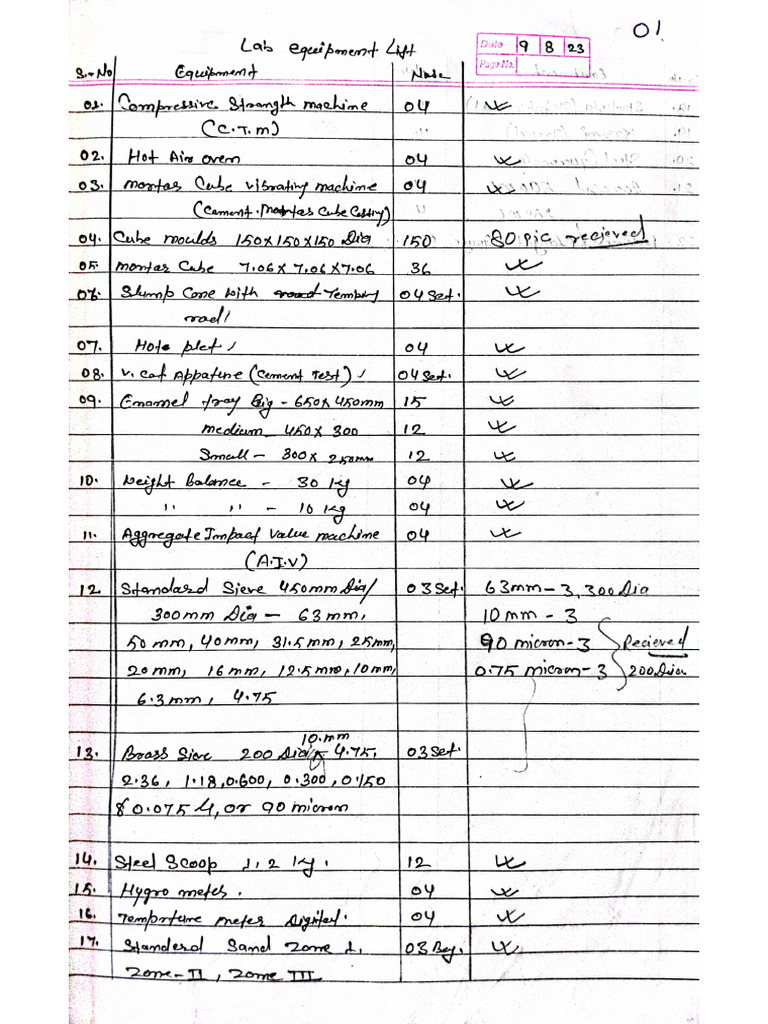 01.
Lab equipment List
Date 9 8 23
Page No.
S.-No Equipment Nose
01. Compressive Strength machine 04
(C.T.m)
02. Hot Air oven 04
03. mortas Cube vibrating machine 04
(Cement. Mortas Cube Casting)
04. Cube moulds 150x150x150 Dia 150 80 pic recieved
05. mortas Cube 7.06x7.06x7.06 36
06. Slump Cone with Temping 04 Set.
rod
07. Hote plet 04
08. V. cat Appature (Cement Test) 04 Set.
09. Enamel tray Big - 650x450mm 15
medium - 450x300 12
Small - 300x250mm 12
10. Weight Balance - 30 Kg 04
" " - 10 Kg 04
11. Aggregate Impact value machine 04
(A.I.V)
12 Standard Sieve 450mm Dia/ 03 Set. 63mm-3, 300 Dia
300mm Dia - 63mm, 10mm-3
50mm, 40mm, 31.5mm, 25mm, 90 micron-3 Recieved
20mm, 16mm, 12.5mm, 10mm, 0.75 micron-3 200 Dia
6.3mm, 4.75
10.mm
13. Brass Sieve 200 Dia 4.75, 03 Set.
2.36, 1.18, 0.600, 0.300, 0.150
& 0.075 u, or 90 micron
14. Steel Scoop 1, 2 Kg. 12
15. Hygro meter. 04
16. Temprture meter Digital. 04
17. Standerd Sand Zone I, 03 Beg.
Zone-II, Zone III